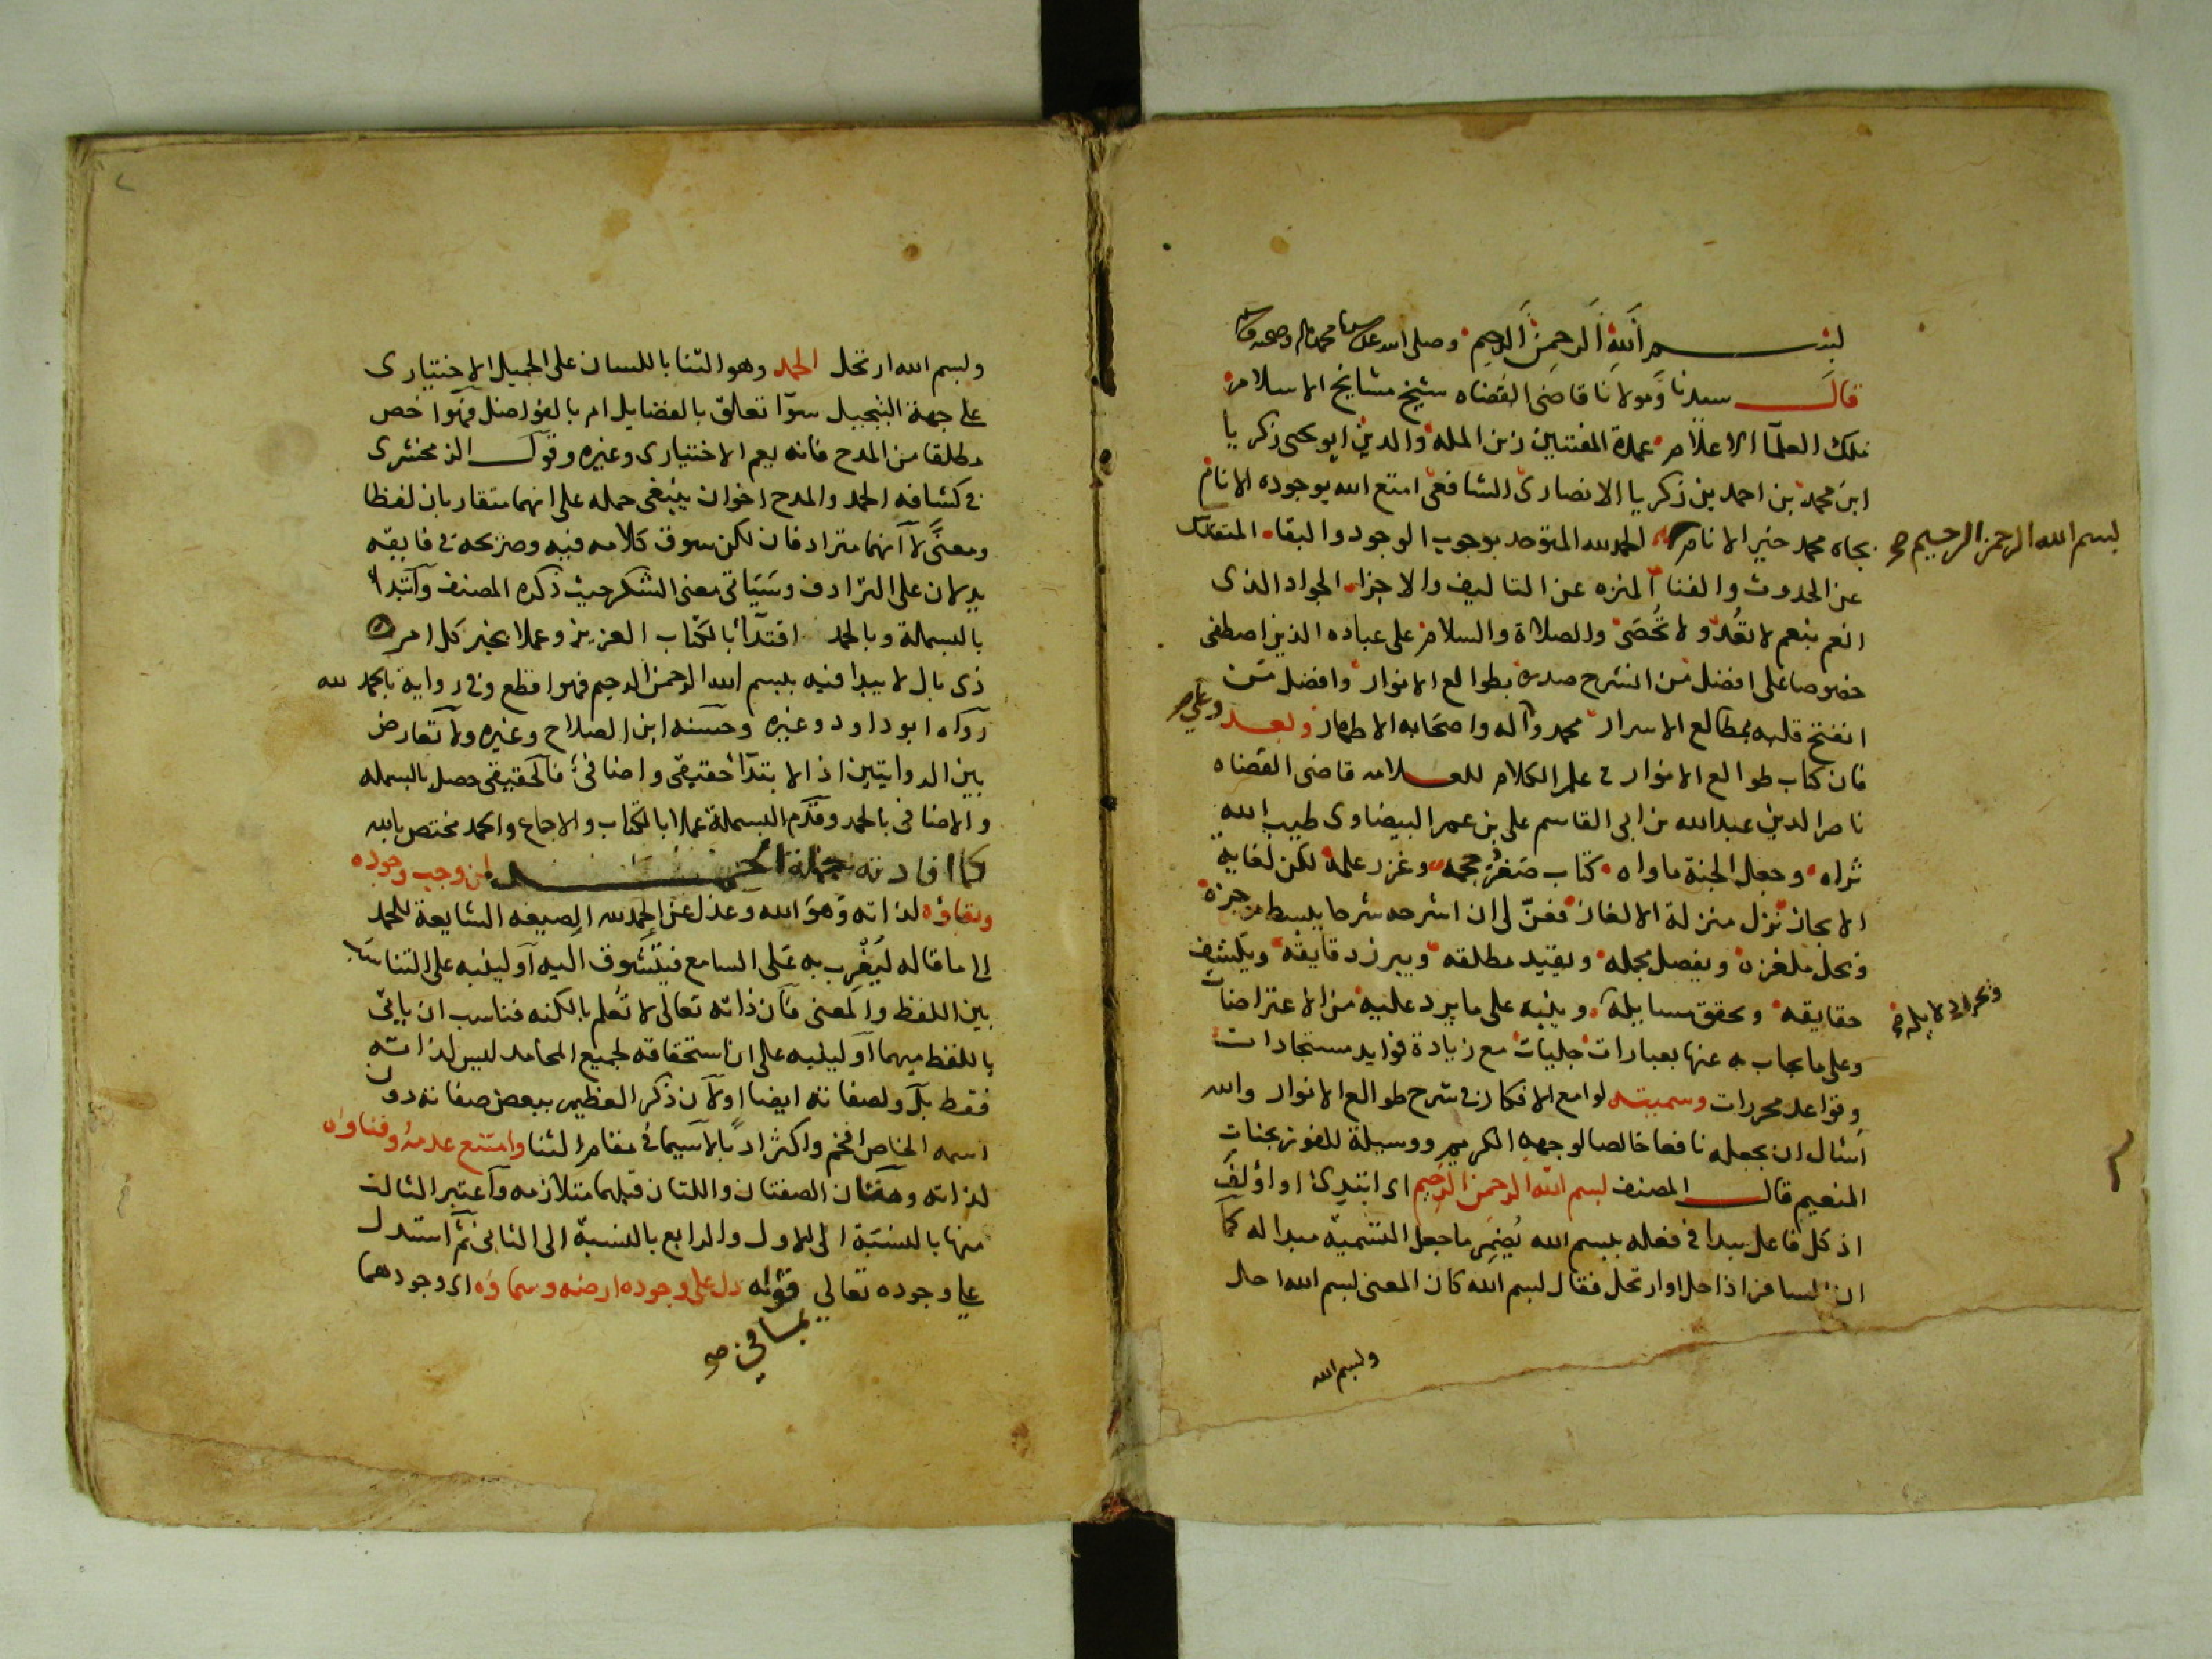 بسم الله الرحمن الرحيم وصلى الله على سيدنا محمد واله وصحبه وسلم
قال سيدنا ومولانا قاضى القضاه شيخ مشايخ الاسلام
ملك العلما الاعلام عمدة المفتيين زين المله والدين ابو يحيى زكريا
ابن محمد بن احمد بن زكريا الانصارى الشافعى امتع الله بوجوده الانام
بجاه محمد خير الانام الحمد لله المتوحد بوجوب الوجود والبقاء المتقدس
بسم الله الرحمن الرحيم صح
عن الحدوث والفنا المنزه عن التاليف والاجزاء الجواد الذى
انعم بنعم لا تعد ولا تحصى والصلاة والسلام على عباده الذين اصطفى
خصوصا على افضل من انشرح صدره بطوالع الانوار وافضل من
انفتح قلبه بمطالع الاسرار محمد وآله واصحابه الاطهار وبعد
وعلى صح
فان كتاب طوالع الانوار فى علم الكلام للعلامه قاضى القضاه
ناصر الدين عبد الله بن ابى القاسم على بن عمر البيضاوى طيب الله
ثراه وجعل الجنة ماواه كتاب صغر حجمه وغزر علمه لكن لغاية
الايجاز نزل منزلة الالغاز فعنّ لى ان اشرحه شرحا يبسط موجزه
ويحل ملغزه ويفصل مجمله ويقيد مطلقه ويبرز دقايقه ويكشف
حقايقه ويحقق مسايله وينبه على ما يرد عليه من الاعتراضات
ويحرر دلايله صح
وعلى ما يجاب به عنها بعبارات جليات مع زيادة فوايد مستجادات
وقواعد محررات وسميته لوامع الافكار فى شرح طوالع الانوار والله
اسال ان يجعله نافعا خالصا لوجهه الكريم ووسيلة للفوز بجنات
النعيم قال المصنف بسم الله الرحمن الرحيم اى ابتدئ او اؤلف
اذ كل فاعل يبدا فى فعله ببسم الله يضمر ما جعل التسمية مبدا له كما
ان المسافر اذا حل او ارتحل فقال بسم الله كان المعنى بسم الله احل
وبسم الله
وبسم الله ارتحل الحمد وهو الثنا باللسان على الجميل الاختيارى
على جهة التبجيل سوا تعلق بالفضايل ام بالفواضل فهو اخص
مطلقا من المدح فانه يعم الاختيارى وغيره وقول الزمخشرى
فى كشافه الحمد والمدح اخوان ينبغى حمله على انهما متقاربان لفظا
ومعنًى لا انهما مترادفان لكن سوق كلامه فيه وصريحه فى فايقه
يدلان على الترادف وسياتى معنى الشكر حيث ذكره المصنف وابتدا
بالبسملة وبالحمد اقتدا بالكتاب العزيز وعملا بخبر كل امر
ذى بال لا يبدا فيه ببسم الله الرحمن الرحيم فهو اقطع وفى رواية بالحمد لله
رواه ابو داود وغيره وحسنه ابن الصلاح وغيره ولا تعارض
بين الروايتين اذ الابتدا حقيقى واضافى فالحقيقى حصل بالبسمله
والاضافى بالحمد وقدم البسملة عملا بالكتاب والاجماع والحمد مختص بالله
كما افادته جملة الحمد لمن وجب وجوده
وبقاؤه لذاته وهو الله وعدل عن الحمد لله الصيغه الشايعة للحمد
الى ما قاله ليغرب به على السامع فيتشوق اليه او لينبه على التناسب
بين اللفظ والمعنى فان ذاته تعالى لا تعلم بالكنه فناسب ان ياتى
باللفظ مبهما او لينبه على ان استحقاقه لجميع المحامد ليس لذاته
فقط بل ولصفاته ايضا او لان ذكر العظيم ببعض صفاته دون
اسمه الخاص افخم واكثر ادبا لا سيما فى مقام الثنا وامتنع عدمه وفناوه
لذاته وهاتان الصفتان واللتان قبلهما متلازمه واعتبر الثالث
منها بالنسبة الى الاول والرابع بالنسبة الى الثانى ثم استدل
على وجوده تعالى قوله دل على وجوده ارضه وسماؤه اى وجودهما
بما فى صح